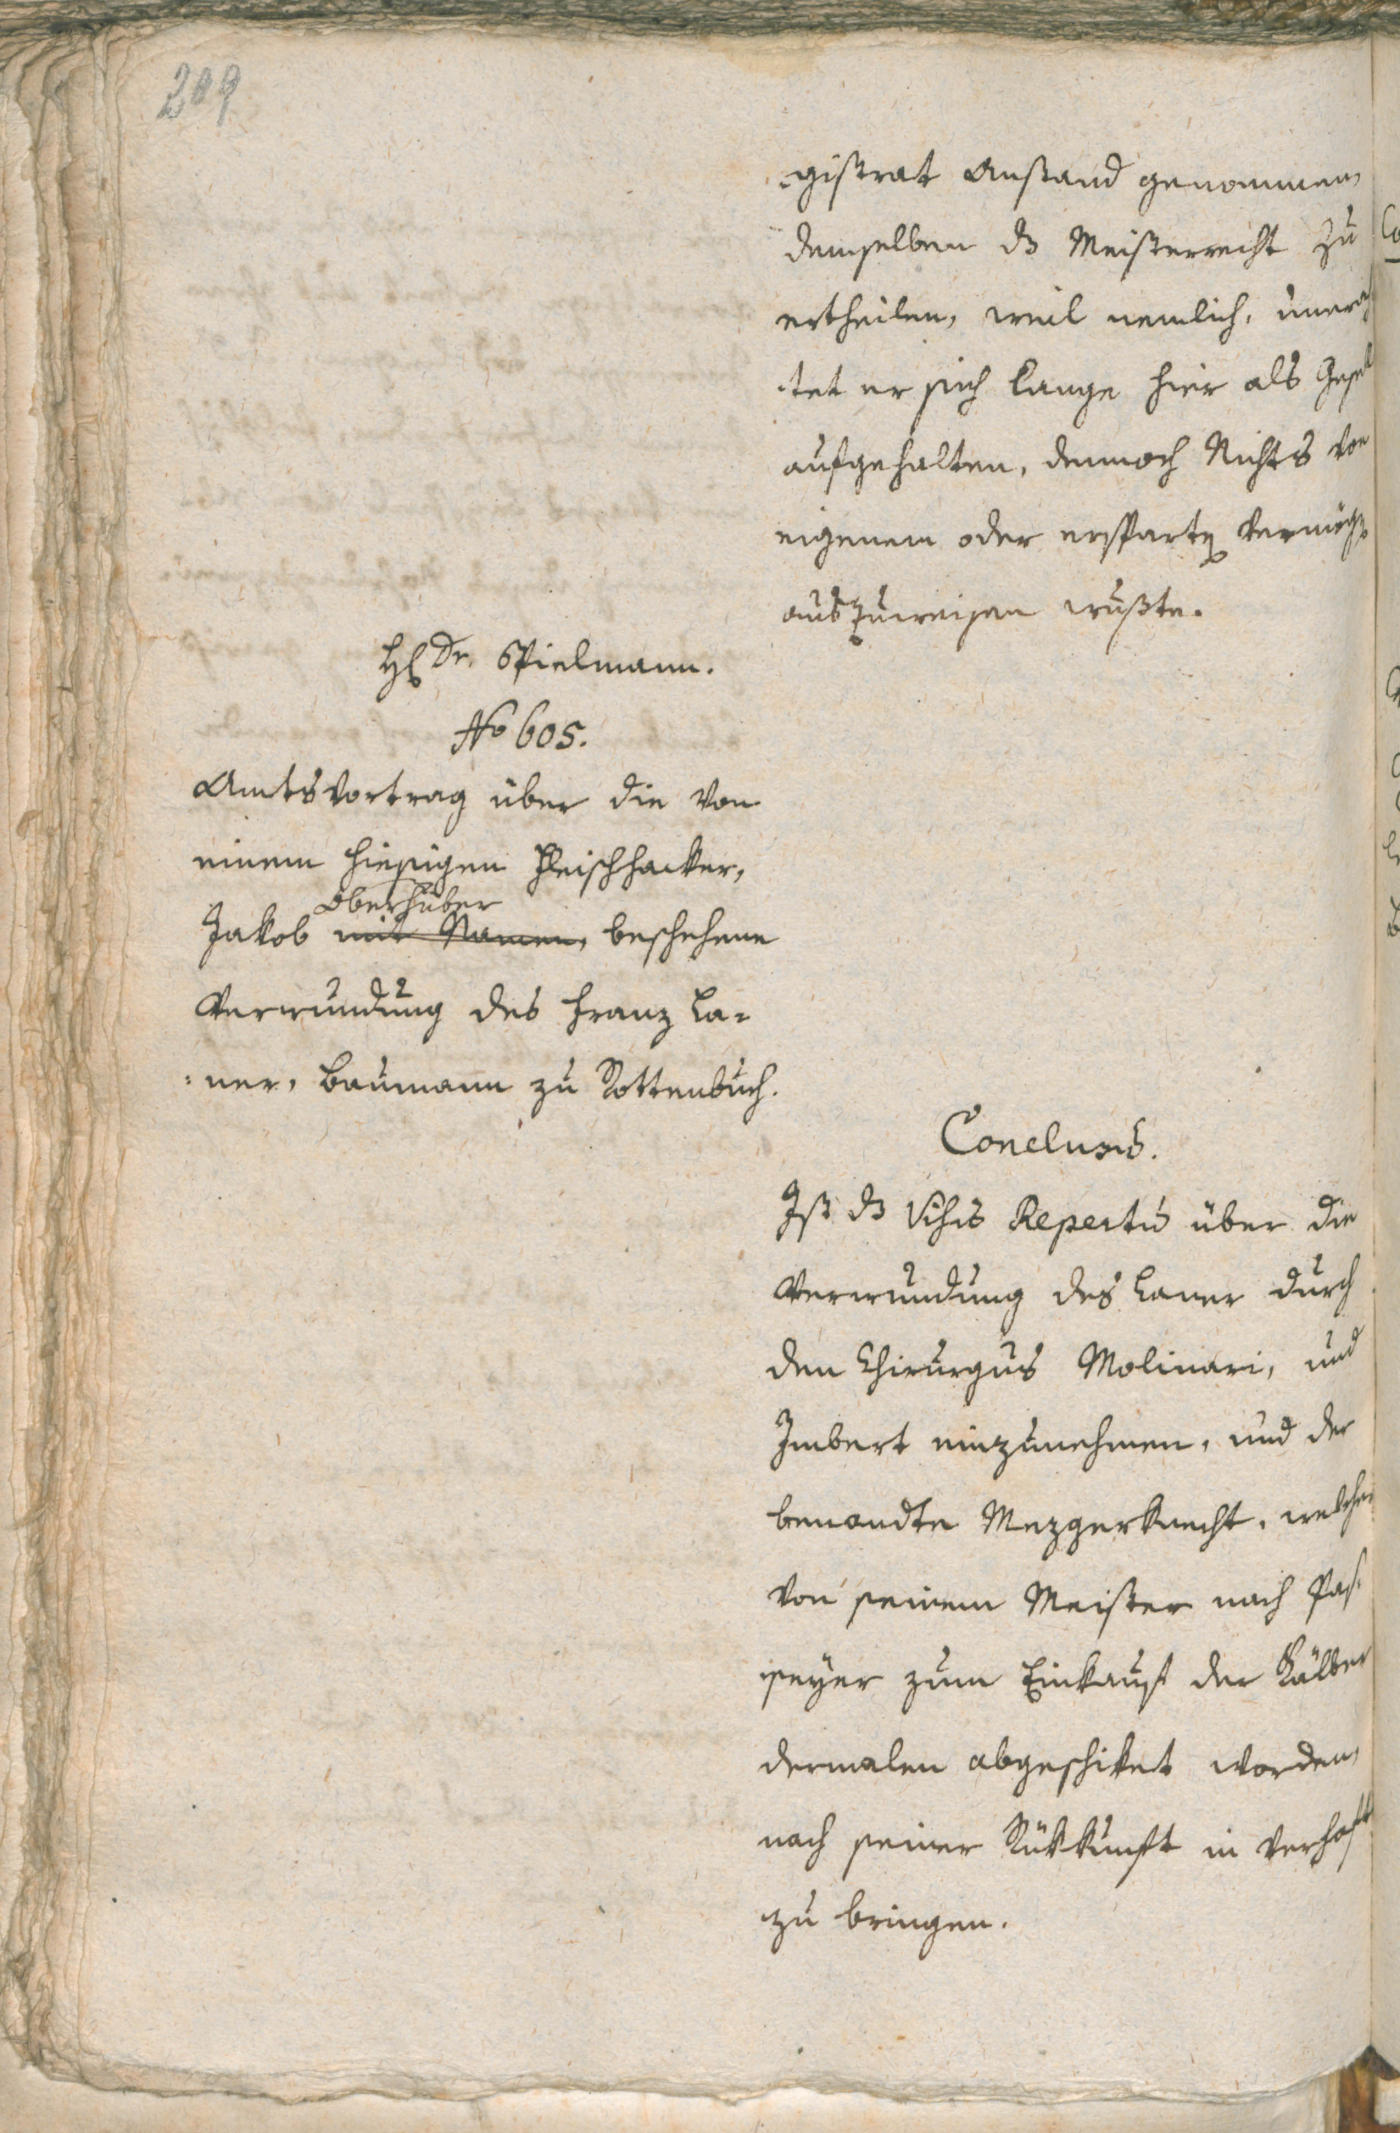 209
gistrat Anstand genommen,
demselben ds Meisterrecht zu
ertheilen, weil nemlich, unerach
tet er sich lange hier als Gesell
aufgehalten, dennoch Nichts von
eigenem oder erspartem Vermögen
auszuweisen wußte.
H. Dr. Spielmann.
No 605.
Amtsvortrag über die von
einem hiesigen Fleischhacker,
Oberhuber
Jakob mit Namen, beschehene
Verwundung des Franz La-
ner, Baumann zu Rottenbuch.
Conclusum.
Ist ds Visum Repertum über die
Verwundung des Laner durch
den Chirurgus Molinari, und
Imbert einzunehmen, und der
benandte Mezgerknecht, welcher
von seinem Meister nach Pas
seyer zum Einkauf der Kälber
dermalen abgeschiket worden,
nach seiner Rükkunft in Verhaft
zu bringen.